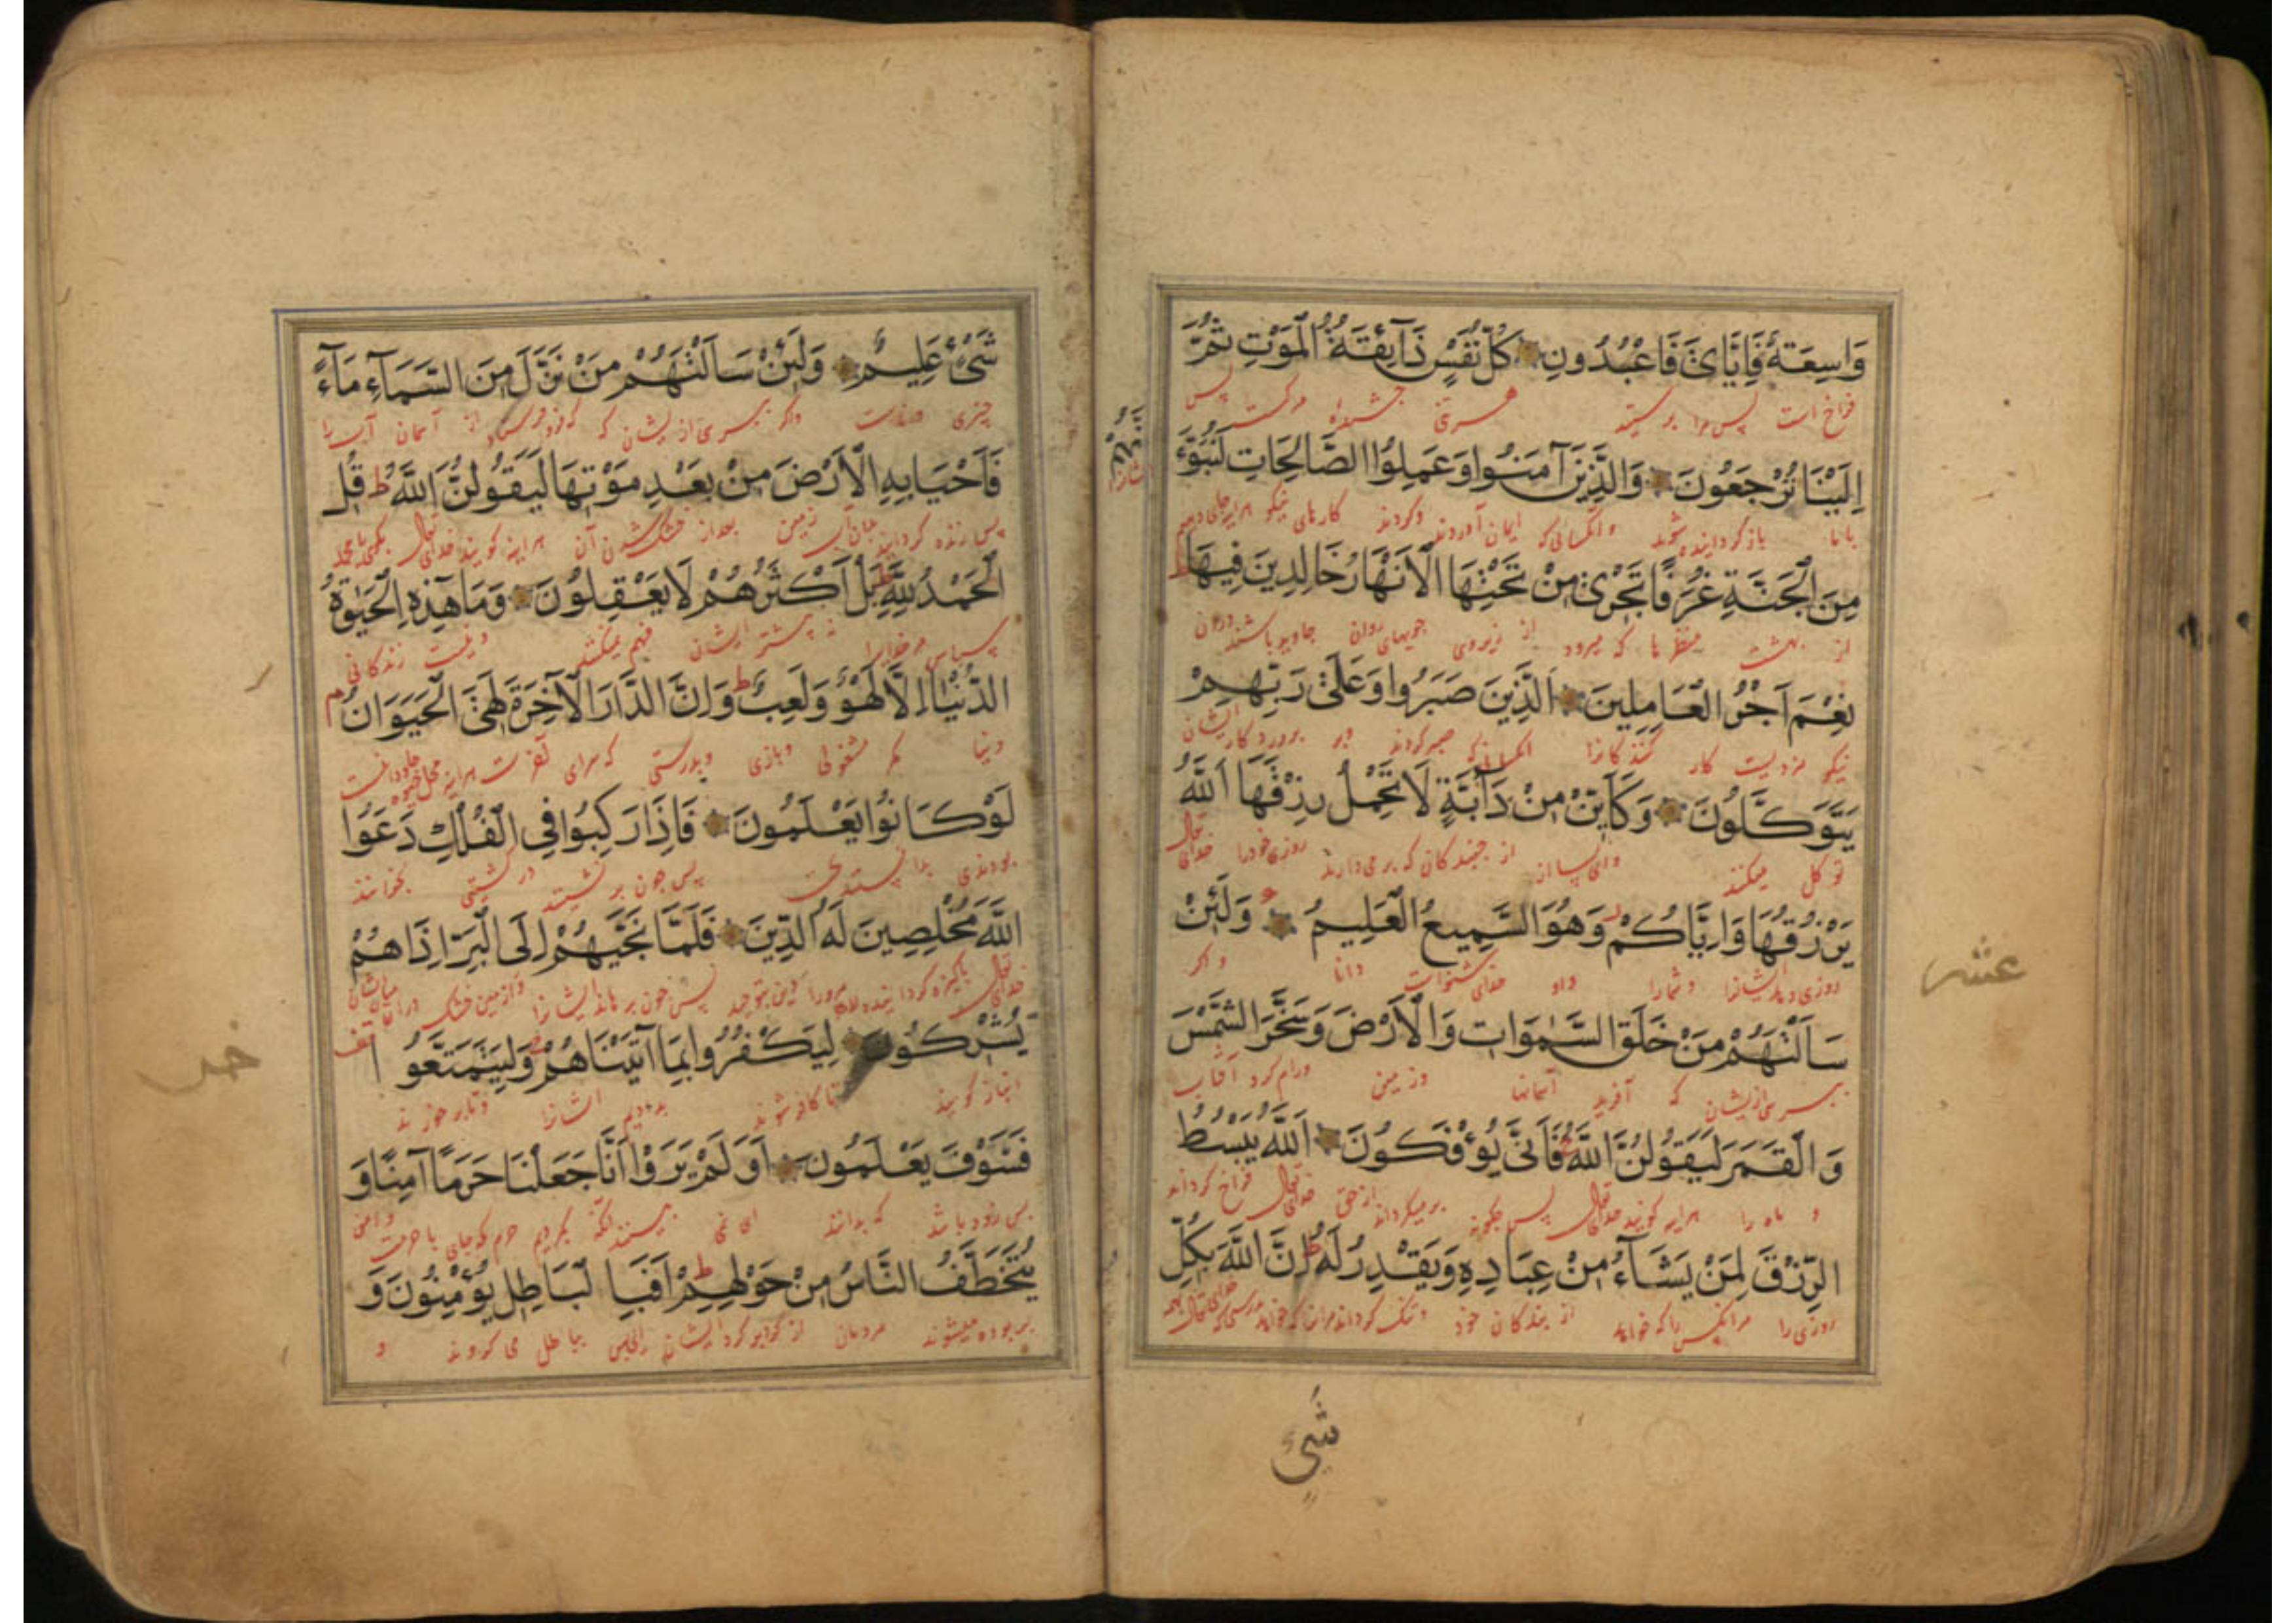 وَاسِعَةٌ فَاِيَّايَ فَاعْبُدُونِ كُلُّ نَفْسٍ ذَآئِقَةُ الْمَوْتِ ثُمَّ
فراخ است پس مرا پرستید هر تنی چشنده مرکست پس
اِلَيْنَا تُرْجَعُونَ وَالَّذِينَ آمَنُوا وَعَمِلُوا الصَّالِحَاتِ لَنُبَوِّئَ
باما باز کردانیده شوند وانکسانی که ایمان آوردند وکردند کارهای نیکو
مِنَ الْجَنَّةِ غُرَفًا تَجْرِي مِنْ تَحْتِهَا الْاَنْهَارُ خَالِدِينَ فِيهَا ط
از بهشت منظرها که میرود از زیر وی جویهای روان جاوید باشند دران
نِعْمَ اَجْرُ الْعَامِلِينَ اَلَّذِينَ صَبَرُوا وَعَلَى رَبِّهِمْ
نیکو مزدیست کار کنندکانرا انکسانیکه صبر کردند وبر پروردکار ایشان
يَتَوَكَّلُونَ وَكَاَيِّنْ مِنْ دَآبَّةٍ لَا تَحْمِلُ رِزْقَهَا اَللَّهُ
توکل میکنند وای بسا از جنبندکان که بر می‌دارند روزی خودرا خدای تعالی
يَرْزُقُهَا وَاِيَّاكُمْ وَهُوَ السَّمِيعُ الْعَلِيمُ وَلَئِنْ
روزی دهد ایشانرا وشمارا واو خدای شنواست دانا واکر
سَاَلْتَهُمْ مَنْ خَلَقَ السَّمٰوَاتِ وَالْاَرْضَ وَسَخَّرَ الشَّمْسَ
بپرسی ازیشان که آفرید آسمانها وزمین ورام کرد آفتاب
وَالْقَمَرَ لَيَقُولُنَّ اللَّهُ فَاَنَّى يُؤْفَكُونَ اَللَّهُ يَبْسُطُ
و ماه را هراینه کویند خدای تعالی پس چکونه برمیکردانند از حق خدای تعالی فراخ کرداند
الرِّزْقَ لِمَنْ يَشَآءُ مِنْ عِبَادِهِ وَيَقْدِرُ لَهُ ط اِنَّ اللَّهَ بِكُلِّ
روزی را مرانکس را که خواهد از بندکان خود وتنک کرداند
شَيْءٍ
عشر
شَيْءٍ عَلِيمٌ وَلَئِنْ سَاَلْتَهُمْ مَنْ نَزَّلَ مِنَ السَّمَآءِ مَآءً
چیزی داناست واکر بپرسی ازیشان که که فرو فرستاد از آسمان آب را
فَاَحْيَا بِهِ الْاَرْضَ مِنْ بَعْدِ مَوْتِهَا لَيَقُولُنَّ اللَّهُ ط قُلِ
پس زنده کرداند بان آب زمین بعد از خشک شدن آن هراینه کویند خدای تعالی بکو یا محمد
الْحَمْدُ لِلَّهِ ط بَلْ اَكْثَرُهُمْ لَا يَعْقِلُونَ وَمَا هٰذِهِ الْحَيٰوةُ
سپاس مر خدایرا نه بیشتر ایشان فهم میکنند ونیست زندکانی
الدُّنْيَا اِلَّا لَهْوٌ وَلَعِبٌ ط وَاِنَّ الدَّارَ الْآخِرَةَ لَهِيَ الْحَيَوَانُ م
دنیا مکر مشغولی وبازی وبدرستی که سرای آخرت هراینه
لَوْ كَانُوا يَعْلَمُونَ فَاِذَا رَكِبُوا فِي الْفُلْكِ دَعَوُا
بودندی بدانستندی پس چون بر نشینند در کشتی بخوانند
اللَّهَ مُخْلِصِينَ لَهُ الدِّينَ فَلَمَّا نَجّٰيهُمْ اِلَى الْبَرِّ اِذَا هُمْ
خدای تعالی پاکیزه کردانیده
يُشْرِكُونَ لِيَكْفُرُوا بِمَا آتَيْنَاهُمْ وَلِيَتَمَتَّعُوا
انباز کویند تا کافر شوند بدادیم ایشانرا وتا برخورند
فَسَوْفَ يَعْلَمُونَ اَوَلَمْ يَرَوْا اَنَّا جَعَلْنَا حَرَمًا آمِنًا وَ
پس زود باشد که بدانند ای نمی بینند که بکردیم حرم که جای با حرمت وامن
يُتَخَطَّفُ النَّاسُ مِنْ حَوْلِهِمْ ط اَفَبِالْبَاطِلِ يُؤْمِنُونَ وَ
بربوده میشوند مردمان از کردبرکرد ایشان بباطل می کروند و